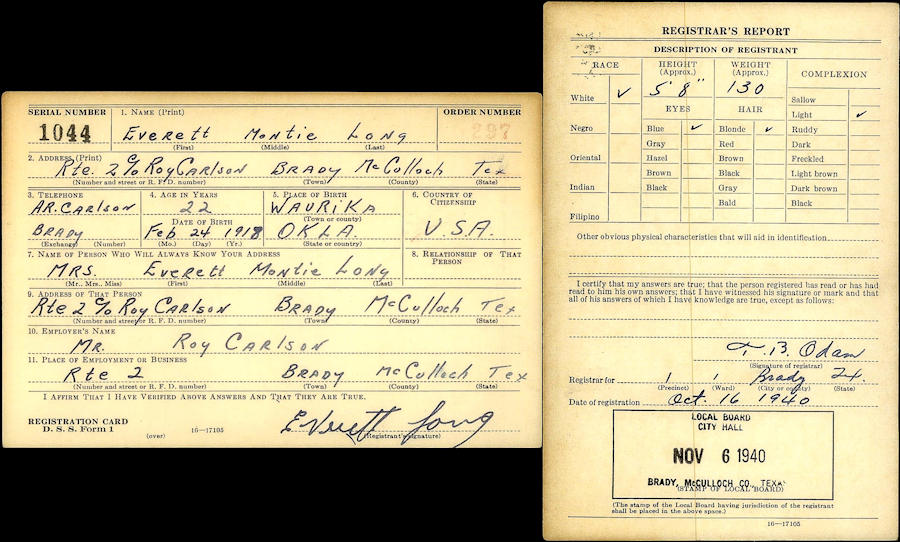 SERIAL NUMBER
1044
1. NAME (Print)
Everett Montie Long
(First) (Middle) (Last)
ORDER NUMBER
297
2. ADDRESS (Print)
Rte. 2 c/o Roy Carlson Brady McCulloch Tex
(Number and street or R. F. D. number) (Town) (County) (State)
3. TELEPHONE
AR. Carlson
Brady
(Exchange) (Number)
4. AGE IN YEARS
22
DATE OF BIRTH
Feb 24 1918
(Mo.) (Day) (Yr.)
5. PLACE OF BIRTH
WAURIKA
(Town or county)
OKLA.
(State or country)
6. COUNTRY OF CITIZENSHIP
U.S.A.
7. NAME OF PERSON WHO WILL ALWAYS KNOW YOUR ADDRESS
MRS. Everett Montie Long
(Mr., Mrs., Miss) (First) (Middle) (Last)
8. RELATIONSHIP OF THAT PERSON
9. ADDRESS OF THAT PERSON
Rte 2 c/o Roy Carlson Brady McCulloch Tex
(Number and street or R. F. D. number) (Town) (County) (State)
10. EMPLOYER'S NAME
MR. Roy Carlson
11. PLACE OF EMPLOYMENT OR BUSINESS
Rte 2 Brady McCulloch Tex
(Number and street or R. F. D. number) (Town) (County) (State)
I AFFIRM THAT I HAVE VERIFIED ABOVE ANSWERS AND THAT THEY ARE TRUE.
REGISTRATION CARD
D. S. S. Form 1
(over)
16—17105
Everett Long
(Registrant's signature)
REGISTRAR'S REPORT
DESCRIPTION OF REGISTRANT
RACE
White ✓
Negro
Oriental
Indian
Filipino
HEIGHT
(Approx.)
5' 8"
WEIGHT
(Approx.)
130
EYES
Blue ✓
Gray
Hazel
Brown
Black
HAIR
Blonde ✓
Red
Brown
Black
Gray
Bald
COMPLEXION
Sallow
Light ✓
Ruddy
Dark
Freckled
Light brown
Dark brown
Black
Other obvious physical characteristics that will aid in identification
I certify that my answers are true; that the person registered has read or has had
read to him his own answers; that I have witnessed his signature or mark and that
all of his answers of which I have knowledge are true, except as follows:
T. B. Odam
(Signature of registrar)
Registrar for 1 1 Brady
(Precinct) (Ward) (City or county) (State)
Date of registration Oct. 16 1940
LOCAL BOARD
CITY HALL
NOV 6 1940
BRADY, McCULLOCH CO., TEXAS
(STAMP OF LOCAL BOARD)
(The stamp of the Local Board having jurisdiction of the registrant
shall be placed in the above space.)
16—17105